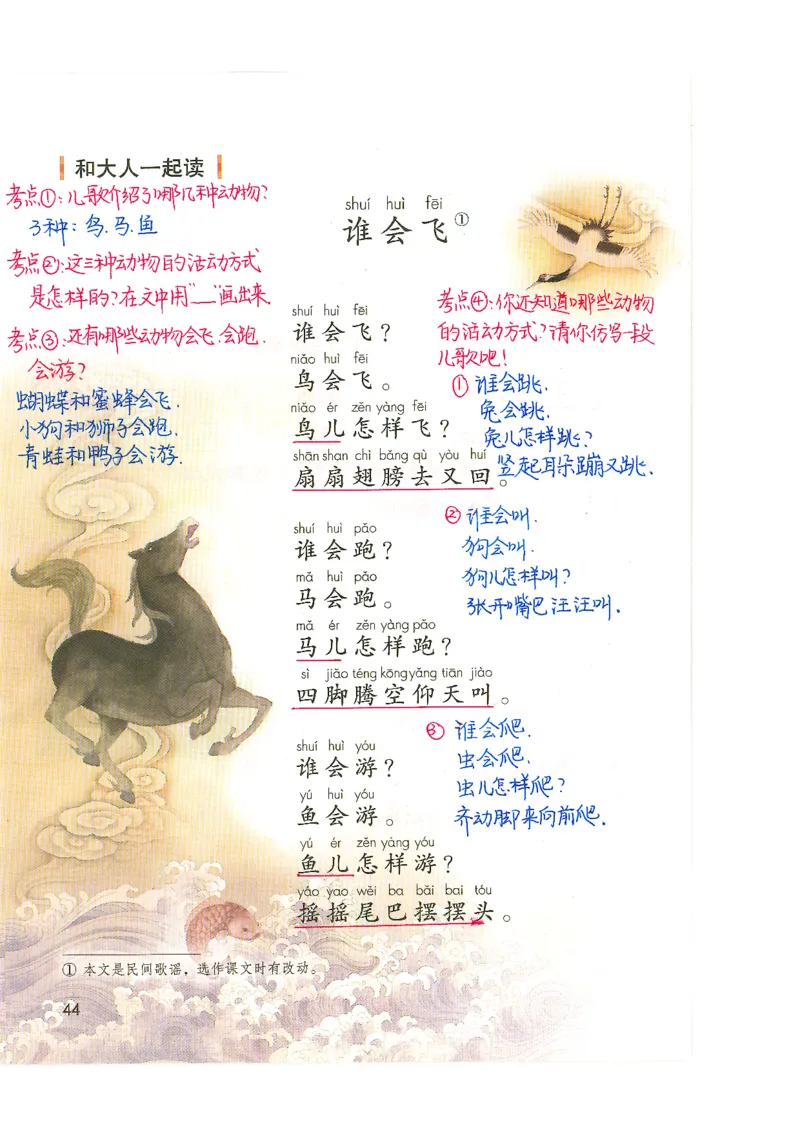 和大人一起读
考点①:儿歌介绍了哪几种动物?
3种:鸟.马.鱼
考点②:这三种动物的活动方式
是怎样的?在文中用"__"画出来.
考点③:还有哪些动物会飞.会跑.
会游?
蝴蝶和蜜蜂会飞.
小狗和狮子会跑.
青蛙和鸭子会游.
shuí huì fēi
谁会飞①
shuí huì fēi
谁会飞?
niǎo huì fēi
鸟会飞。
niǎo ér zěn yàng fēi
鸟儿怎样飞?
shān shan chì bǎng qù yòu huí
扇扇翅膀去又回。
shuí huì pǎo
谁会跑?
mǎ huì pǎo
马会跑。
mǎ ér zěn yàng pǎo
马儿怎样跑?
sì jiǎo téng kōng yǎng tiān jiào
四脚腾空仰天叫。
shuí huì yóu
谁会游?
yú huì yóu
鱼会游。
yú ér zěn yàng yóu
鱼儿怎样游?
yáo yao wěi ba bǎi bai tóu
摇摇尾巴摆摆头。
考点④:你还知道哪些动物
的活动方式?请你仿写一段
儿歌吧!
①谁会跳.
兔会跳.
兔儿怎样跳?
竖起耳朵蹦又跳.
②谁会叫.
狗会叫.
狗儿怎样叫?
张开嘴巴汪汪叫.
③谁会爬.
虫会爬.
虫儿怎样爬?
齐动脚来向前爬.
① 本文是民间歌谣,选作课文时有改动。
44